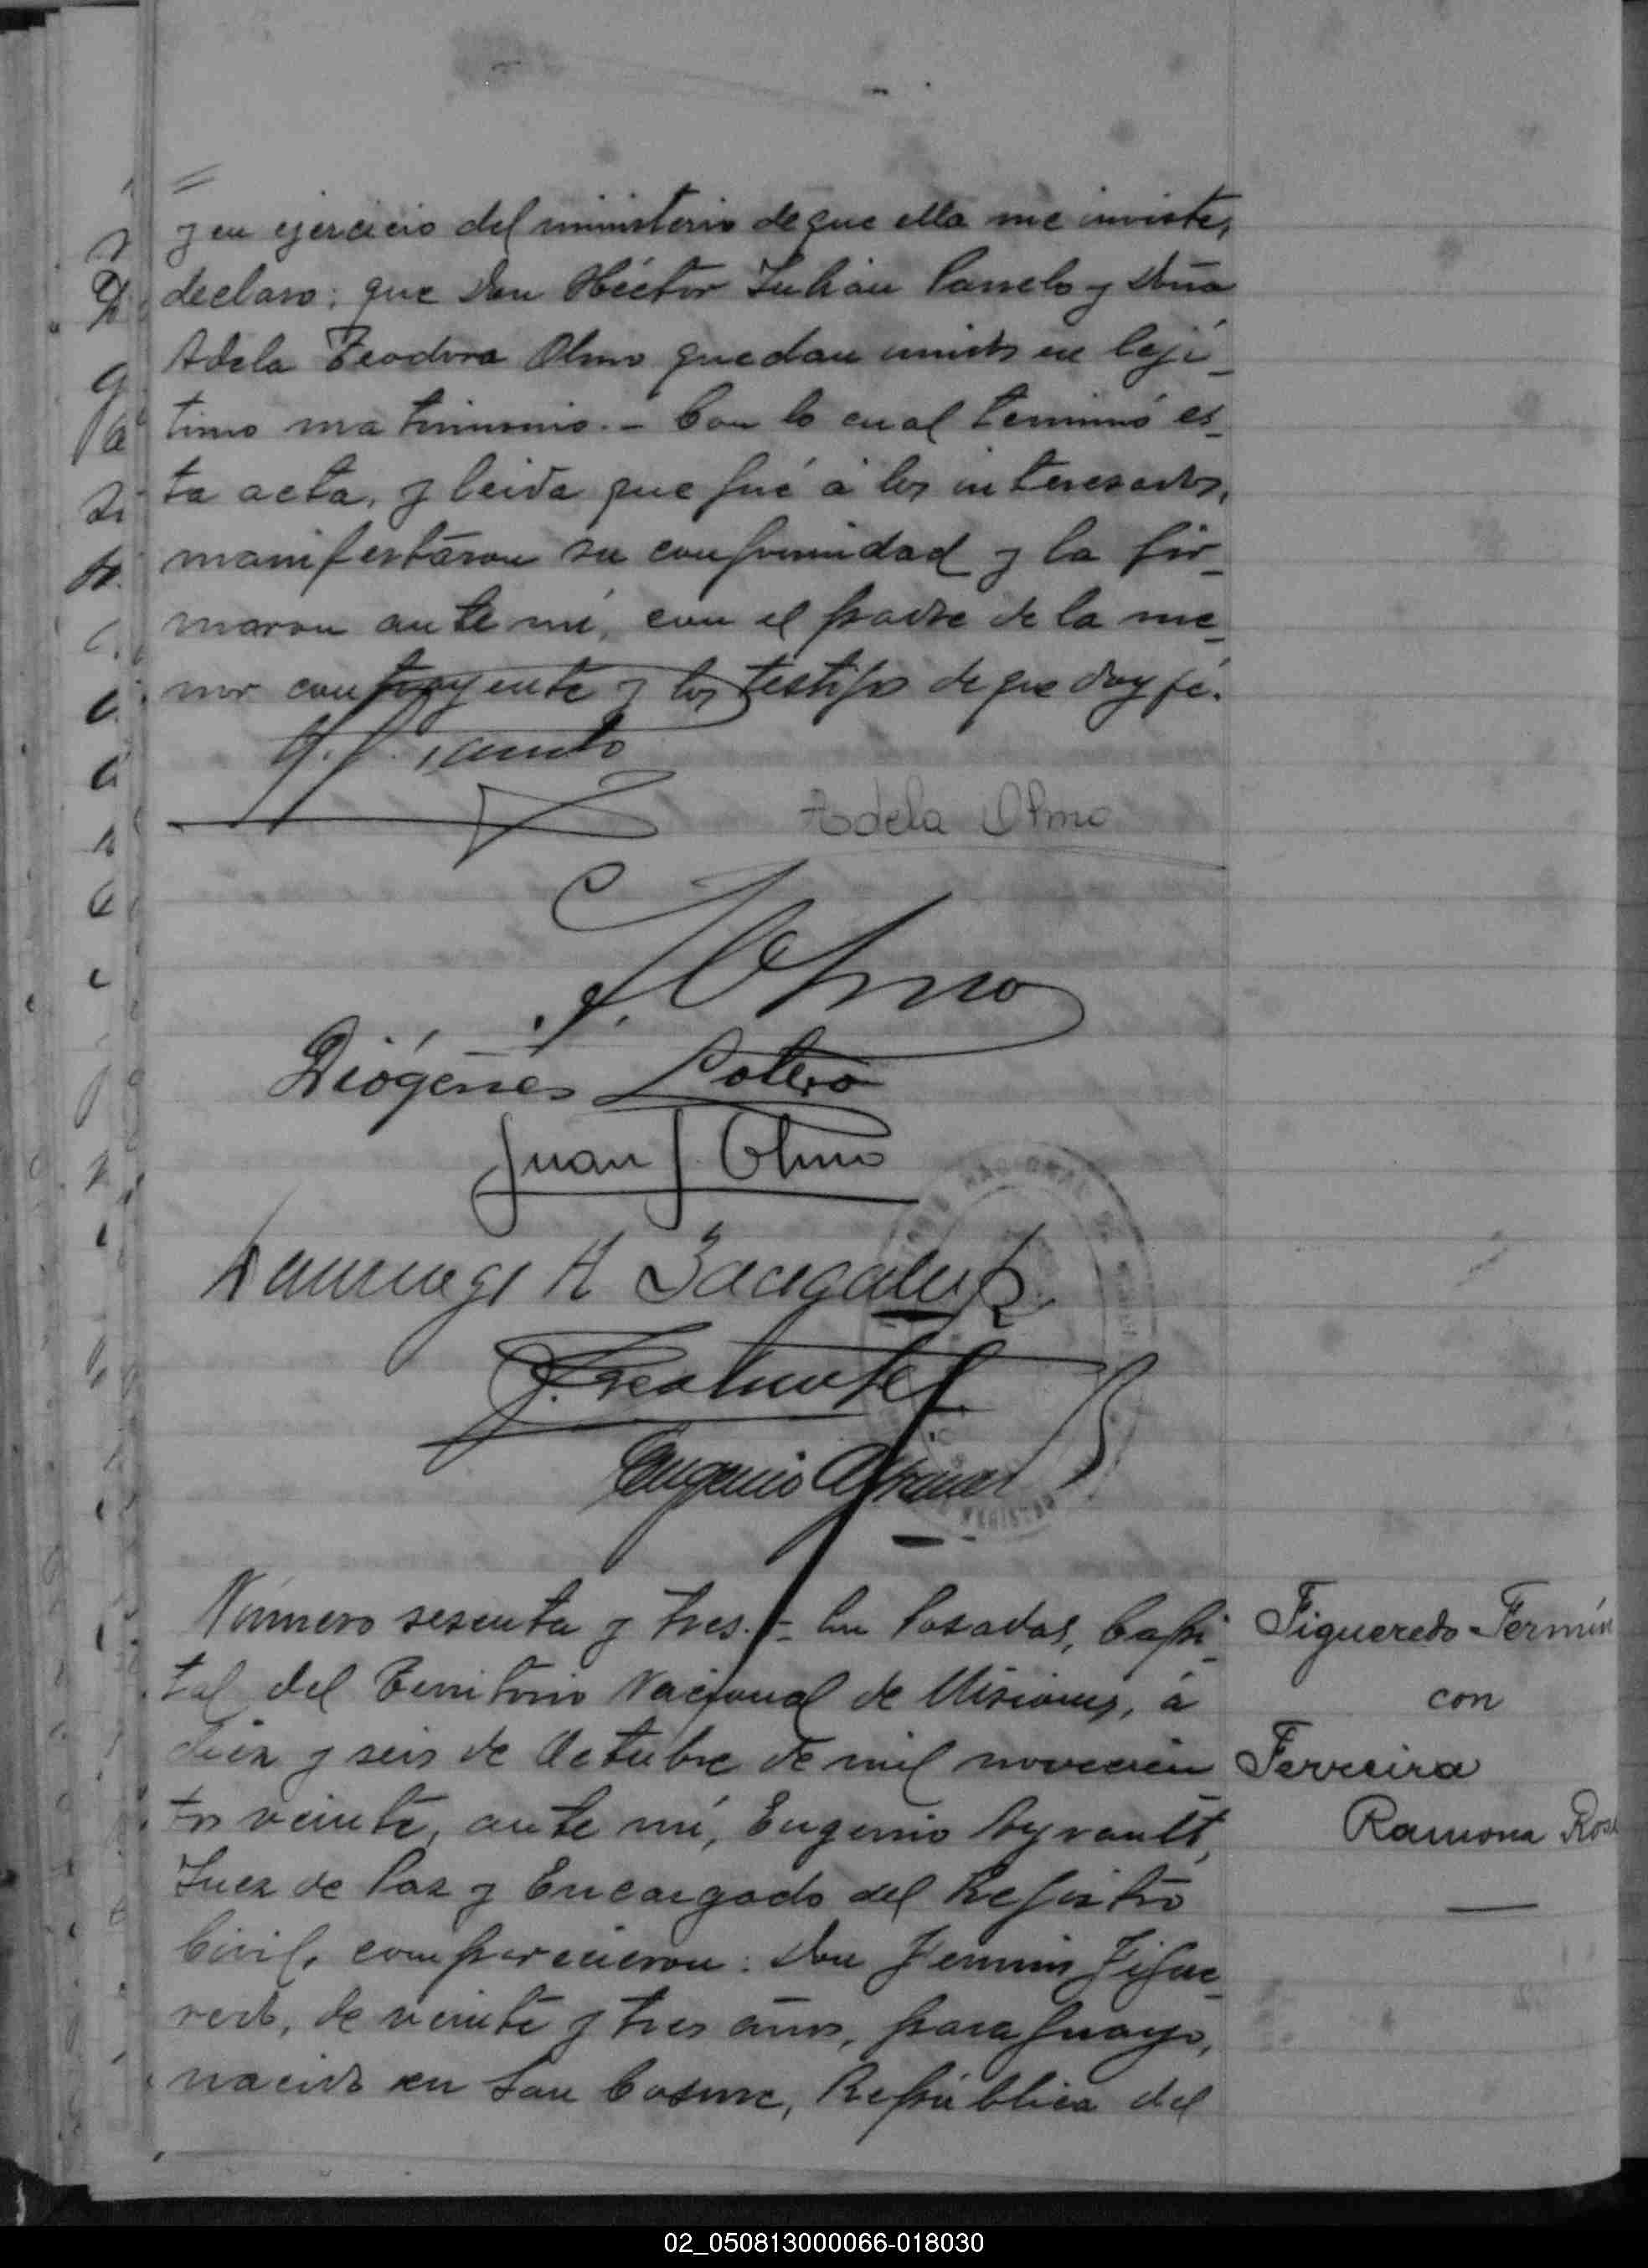 y en ejercicio del ministerio de que ella me inviste,
declaro: que Don Héctor Julián y Doña
Adela Teodora Olmo quedan unidos en lejí-
timo matrimonio.- Con lo cual terminó es-
ta acta, y leida que fué á los interesados,
manifestáron su conformidad y la fir-
maron ante mí, con el padre de la me-
nor contrayente y los testigos de que doy fé.
Adela Olmo
J. Olmo
Diógenes Sotero
Juan J. Olmo
Eugenio
Número sesenta y tres.- En Posadas, Capi-
tal del Territorio Nacional de Misiones, á
diez y seis de Octubre de mil novecien
tos veinte, ante mí, Eugenio Ayrault,
Juez de Paz y Encargado del Registro
Civil, comparecieron: Don Fermin Figue-
redo, de veinte y tres años, paraguayo,
nacido en San Cosme, República del
Figueredo Fermín
con
Ferreira
Ramona Rosa
02_050813000066-018030